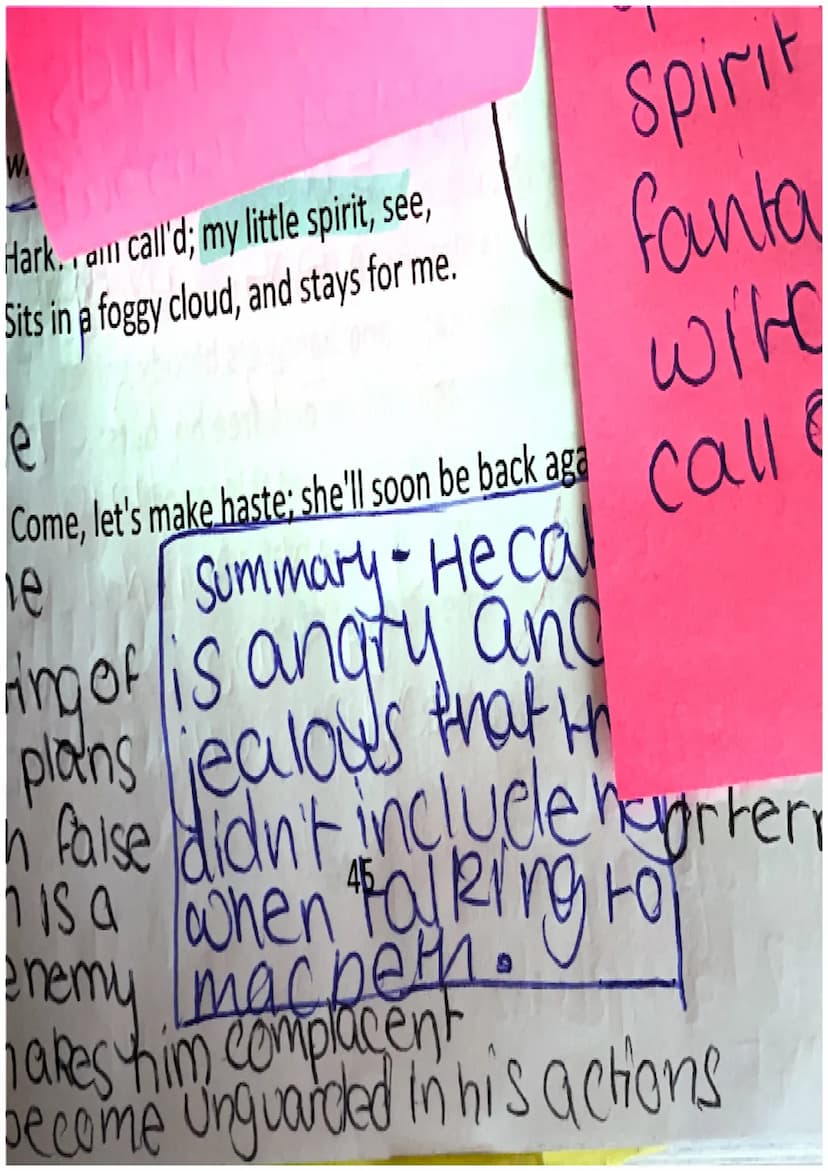 Hark! I am call'd; my little spirit, see,
Sits in a foggy cloud, and stays for me.
e
Come, let's make haste; she'll soon be back aga
Summary - Hecat
is angry and
jealous that th
didn't include her
when talking to
macbeth.
45
ing of
plans
h false
n is a
enemy
makes him complacent
become unguarded in his actions
spirit
fanta
witc
call